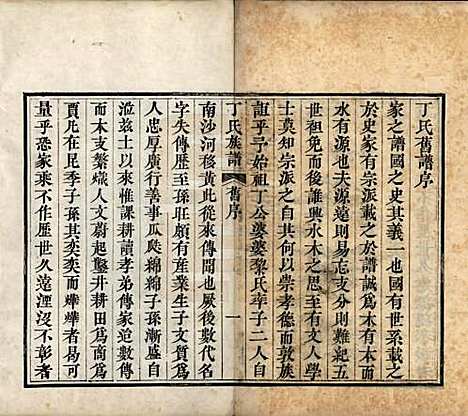 丁氏舊譜序
家之譜國之史其義一也國有世系載之
於史家有宗派載之於譜誠爲木有本而
水有源也夫本源遠則易忘支分則難紀五
世祖免而後誰興水木之思有文人學
士莫知宗派之自來尊祖崇孝德而敦族
誼乎予始祖丁公婆婆黎氏率子二人自
丁氏族譜
舊序
一
南沙河移黃此從來傳聞也厥後數代名
字失傳歷至弘正年頗有產業生子文質爲
人忠厚廣行善事瓜瓞綿綿子孫漸盛自
茲土以來惟課耕讀孝弟傳家迨數傳
而本支繁熾人文蔚起鑿井耕田萬商
賈凡在昆季子孫其奕奕而燁燁者何可
量乎悉家乘不作歷世久遠湮沒不彰者